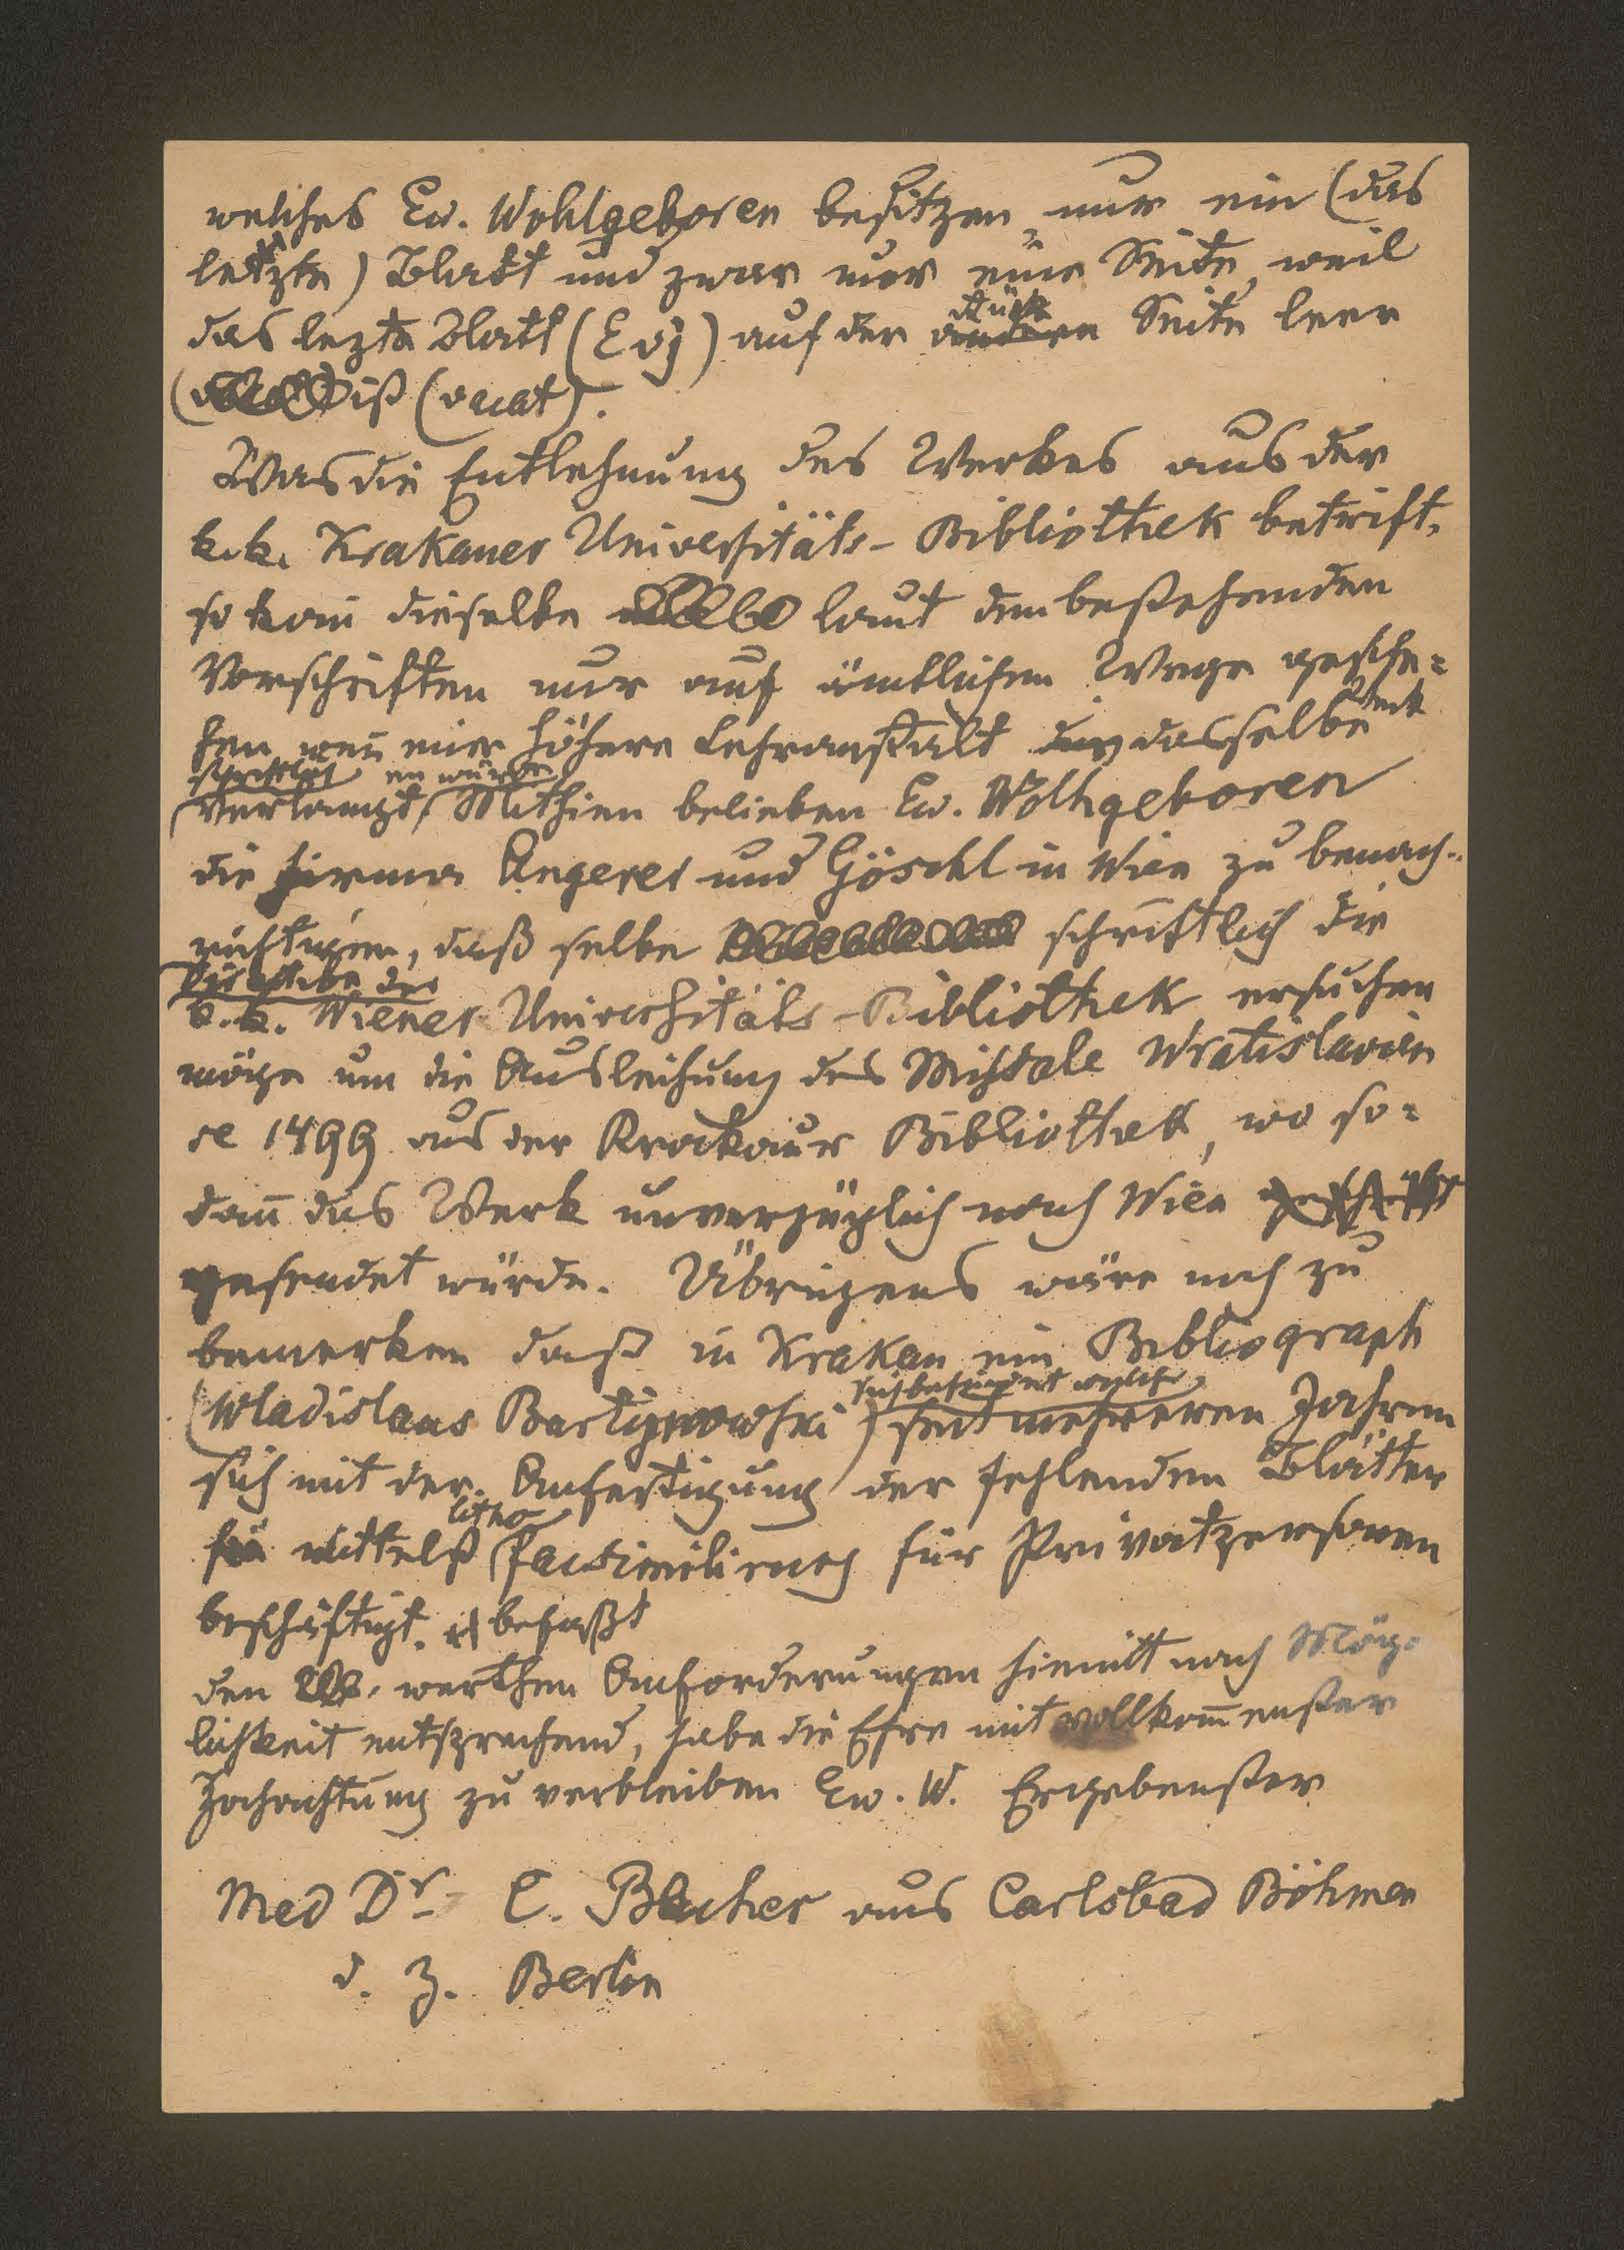 welches Ew. Wohlgeboren besitzen nur ein (das
letzte) Blatt und zwar nur eine Seite, weil
das lezte Blatt (Evj) auf der Rück
andern Seite leer
ist (vacat).
Was die Entlehnung des Werkes aus der
k.k. Krakauer Universitäts-Bibliothek betrift,
so kan̅ dieselbe laut den bestehenden
Vorschriften nur auf ämtlichem Wege gesche=
hen wen̅ eine höhere Lehranstalt dasselbe
schriftlich en würde
verlangt. Mithien belieben Ew. Wolhgeboren
die Firma Angerer und Göschl in Wien zu benach-
richtigen, daß selbe schriftlich die
Direction der
k.k. Wiener Universitäts-Bibliothek ersuchen
möge um die Ausleihung des Missale Wratislavien
se 1499 aus der Krackauer Bibliothek, wo so=
dan̅ das Werk unverzüglich nach Wien
gesendet würde. Übrigens wäre noch zu
bemerken daß in Krakau ein Bibliograph
sich befindet welcher
(Wladislaus Bartynowski) seit mehreren Jahren
sich mit der Anfertigung der fehlenden Blätter
litho
mittelst facsimilirung für Privatpersonen
beschäftigt. befaßt
den werthen Anforderungen hiemitt nach Mög-
lichkeit entsprechend, habe die Ehre mit vollkom̅enster
Hochachtung zu verbleiben Ew. W. Ergebenster
Med Dr C. Becher aus Carlsbad Böhmen
d. Z. Berlin